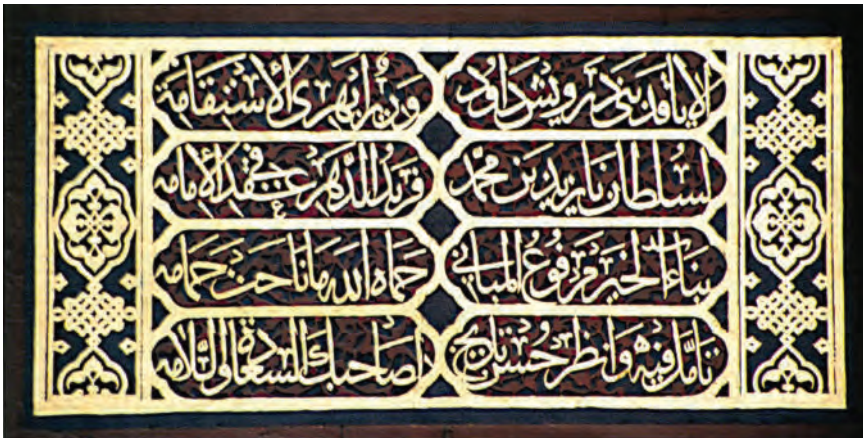 الا ياقد بنى درويش داود وزير ابهرى الاستقامة
لسلطان بايزيد بن محمد فريد الدهر في عقد الامامه
بناء الخير مرفوع المباني حماه الله ما ناحت حمامه
تامل فيه وانظر حسن تاريخ لصاحبك السعادة والسلامه